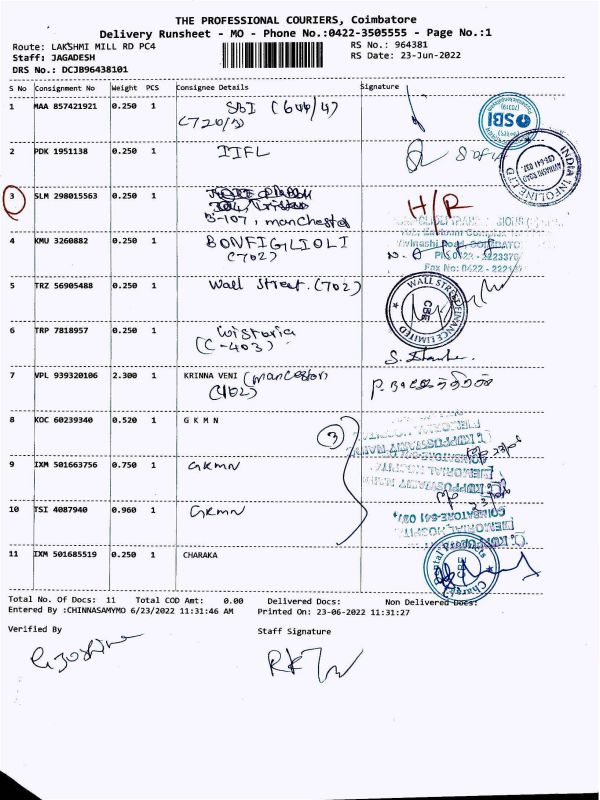 THE PROFESSIONAL COURIERS, Coimbatore
Delivery Runsheet - MO - Phone No.:0422-3505555 - Page No.:1
Route: LAKSHMI MILL RD PC4
RS No.: 964381
Staff: JAGADESH
RS Date: 23-Jun-2022
DRS No.: DCJB96438101
S No Consignment No Weight PCS Consignee Details Signature
1 MAA 857421921 0.250 1 SBI
SBI
2 PDK 1951138 0.250 1 IIFL
INDIA INFOLINE LTD
3 SLM 298015563 0.250 1
B-107, manchester
H/R
4 KMU 3260882 0.250 1 BONFIGLIOLI
(702)
Fax No: 0422 -
5 TRZ 56905488 0.250 1 Wall Street. (702)
WALL STREET FINANCE LIMITED
CBE
6 TRP 7818957 0.250 1 Wistoria
(C-403)
7 VPL 939320106 2.300 1 KRINNA VENI
8 KOC 60239340 0.520 1 G K M N
3
9 IXM 501663756 0.750 1 GKMN
MEMORIAL HOSPITAL
10 TSI 4087940 0.960 1 GKMN
COIMBATORE-641 037
11 IXM 501685519 0.250 1 CHARAKA
Total No. Of Docs: 11 Total COD Amt: 0.00 Delivered Docs: Non Delivered Docs:
Entered By :CHINNASAMYMO 6/23/2022 11:31:46 AM Printed On: 23-06-2022 11:31:27
Verified By
Staff Signature